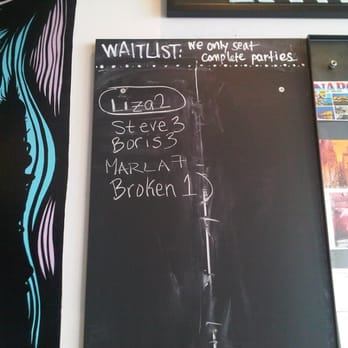 WAITLIST: We only seat
complete parties.
Liza 2
Steve 3
Boris 3
MARLA 7
Broken 1